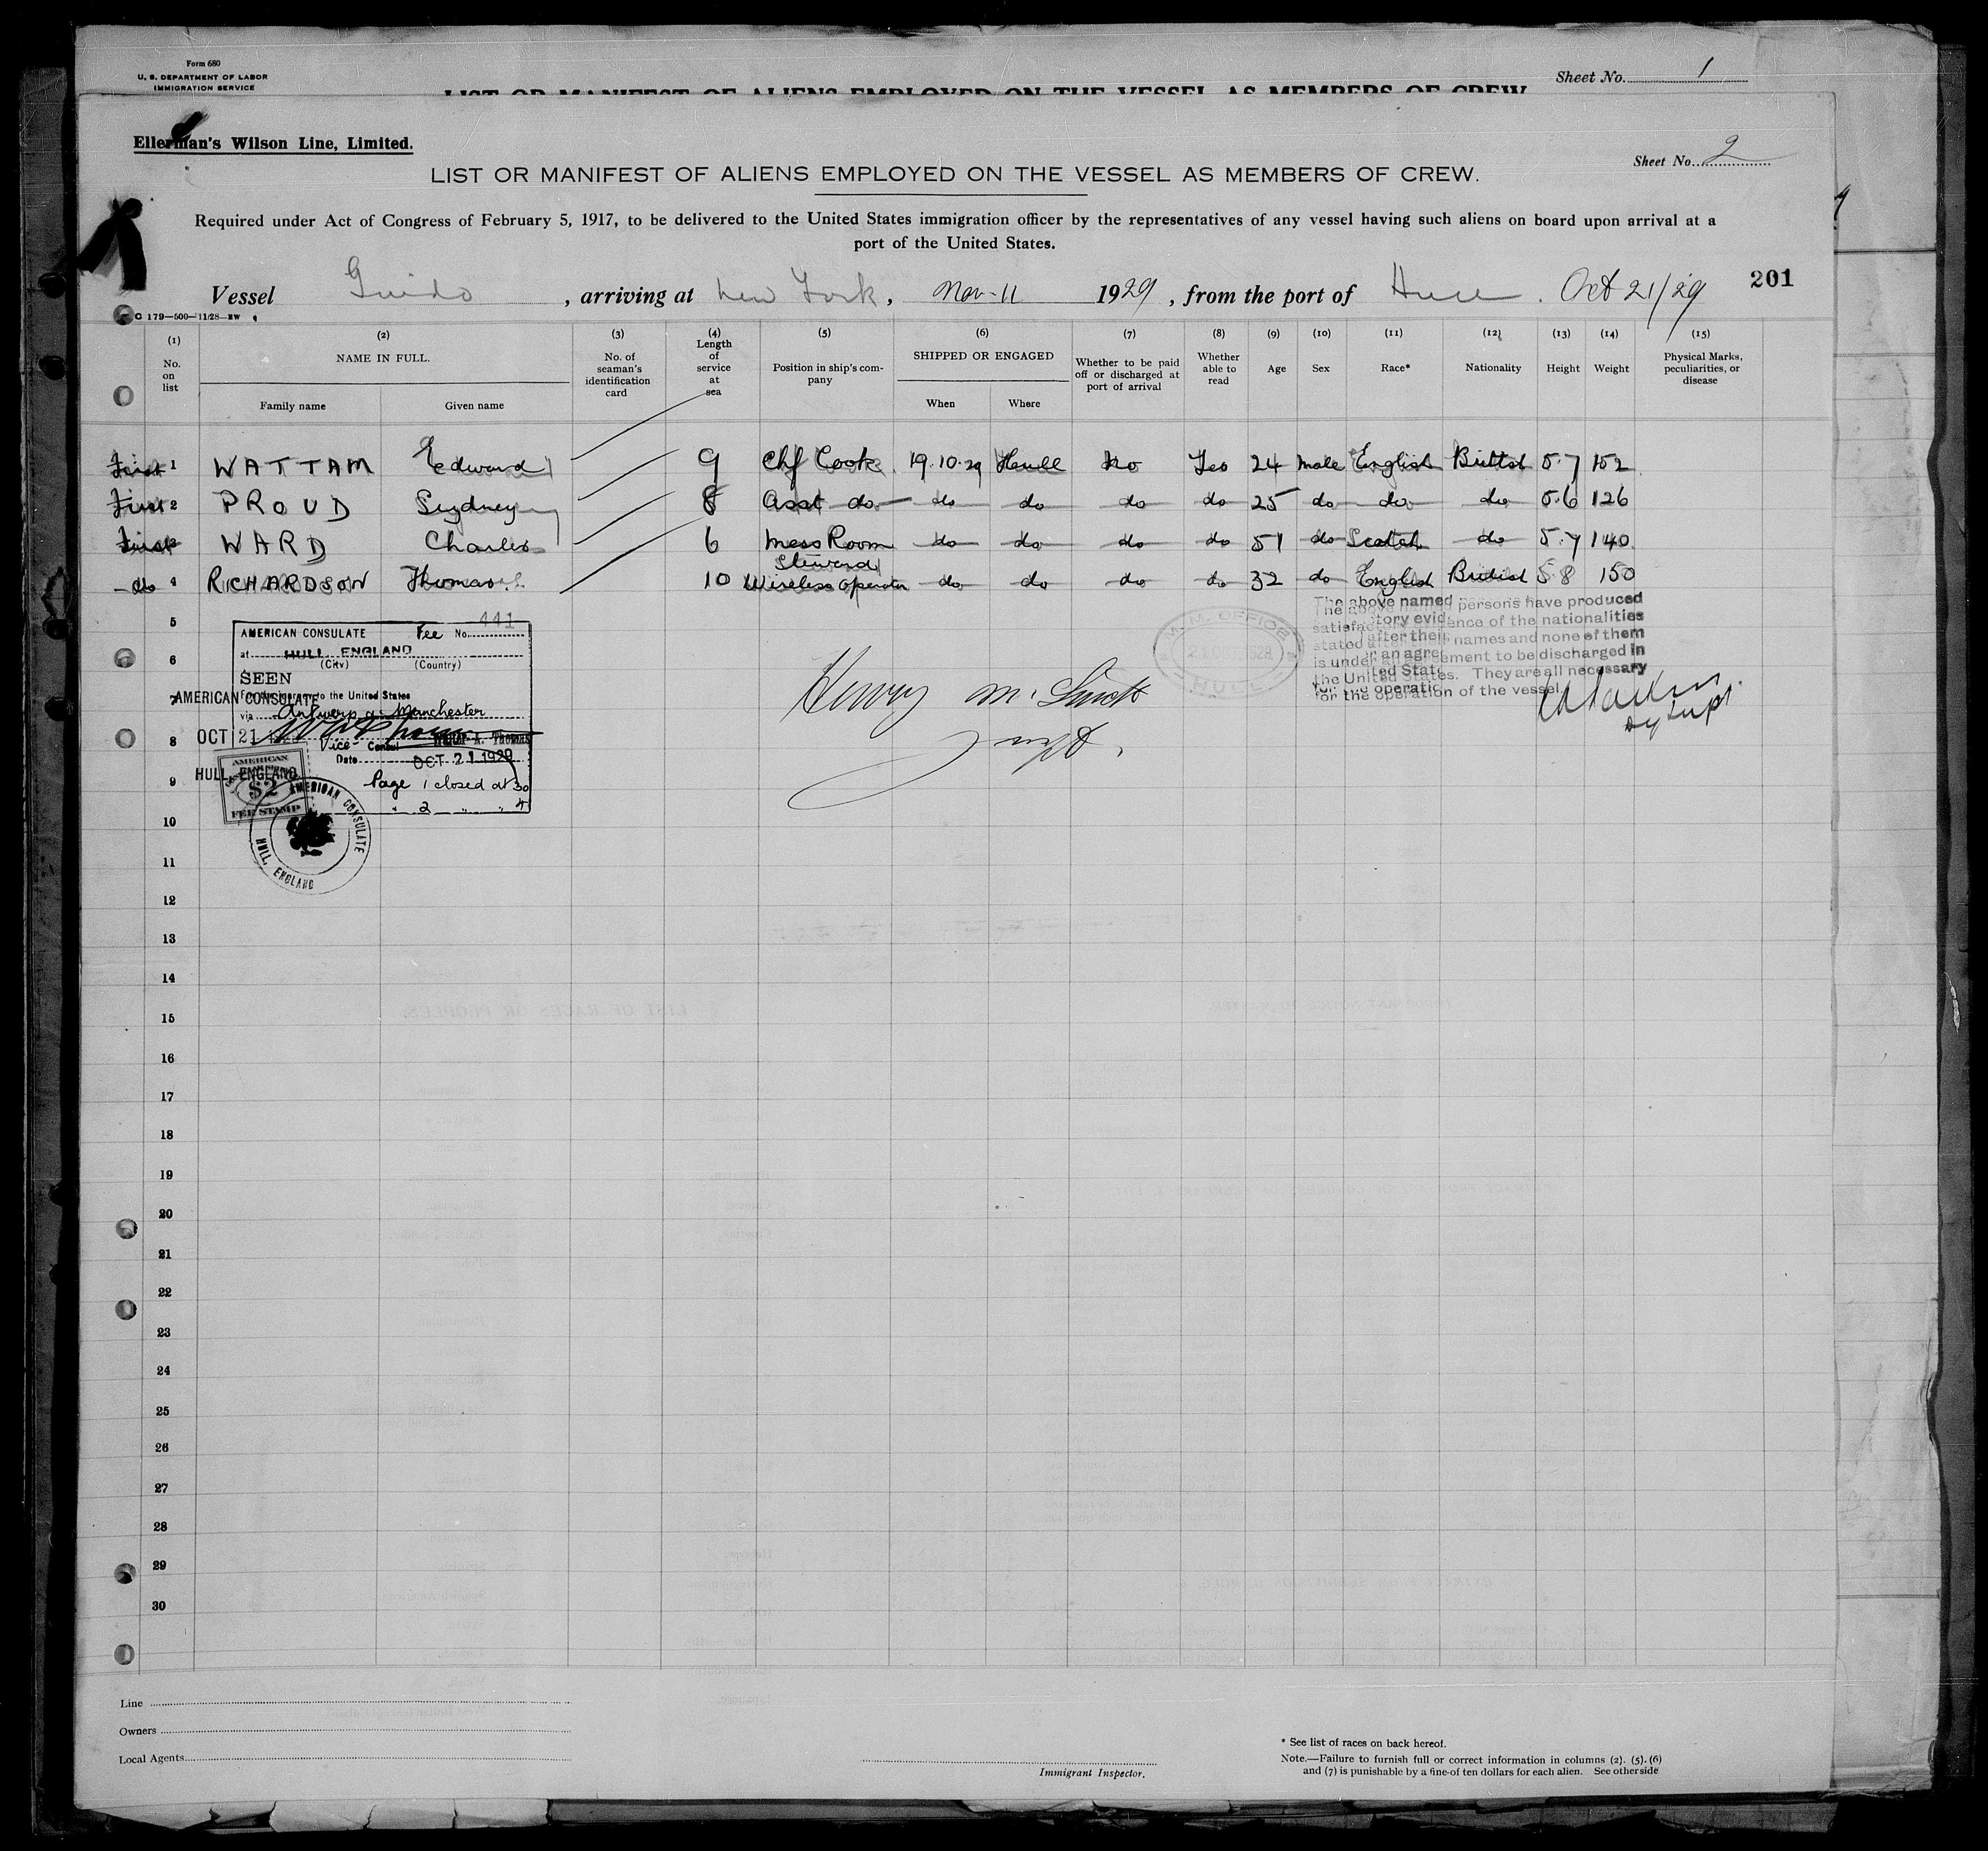 Form 680
U. S. DEPARTMENT OF LABOR
IMMIGRATION SERVICE
Sheet No. 1
LIST OR MANIFEST OF ALIENS EMPLOYED ON THE VESSEL AS MEMBERS OF CREW
Ellerman's Wilson Line, Limited.
Sheet No. 2
LIST OR MANIFEST OF ALIENS EMPLOYED ON THE VESSEL AS MEMBERS OF CREW.
Required under Act of Congress of February 5, 1917, to be delivered to the United States immigration officer by the representatives of any vessel having such aliens on board upon arrival at a
port of the United States.
201
Vessel Guido, arriving at New York, Nov. 11 1929, from the port of Hull. Oct 21/29
G 179—500—11/28—RW
(1) No. on list
(2) NAME IN FULL.
Family name Given name
(3) No. of seaman's identification card
(4) Length of service at sea
(5) Position in ship's company
(6) SHIPPED OR ENGAGED
When Where
(7) Whether to be paid off or discharged at port of arrival
(8) Whether able to read
(9) Age
(10) Sex
(11) Race*
(12) Nationality
(13) Height
(14) Weight
(15) Physical Marks, peculiarities, or disease
First 1 WATTAM Edward 9 Chf Cook 19.10.29 Hull No Yes 24 male English British 5.7 152
First 2 PROUD Sydney 8 Asst do do do do do 25 do do do 5.6 126
First 3 WARD Charles 6 Mess Room Steward do do do do 51 do Scotch do 5.7 140
do 4 RICHARDSON Thomas 10 Wireless Operator do do do do 32 do English British 5.8 150
5
6
7
8
9
10
11
12
13
14
15
16
17
18
19
20
21
22
23
24
25
26
27
28
29
30
AMERICAN CONSULATE Fee No. 441
at HULL, ENGLAND
(City) (Country)
SEEN
to the United States
via Antwerp & Manchester
Vice Consul
Date OCT 21 1929
Page 1 closed at 30
" 2 " " 4
AMERICAN CONSULATE
OCT 21
HULL, ENGLAND
AMERICAN
$2
FEE STAMP
AMERICAN CONSULATE
HULL, ENGLAND
M. M. OFFICE
HULL
Henry M.
The above named persons have produced
satisfactory evidence of the nationalities
stated after their names and none of them
is under an agreement to be discharged in
the United States. They are all necessary
for the operation of the vessel.
Dy Supt
Line
Owners
Local Agents
Immigrant Inspector.
* See list of races on back hereof.
Note.—Failure to furnish full or correct information in columns (2). (5). (6)
and (7) is punishable by a fine of ten dollars for each alien. See other side